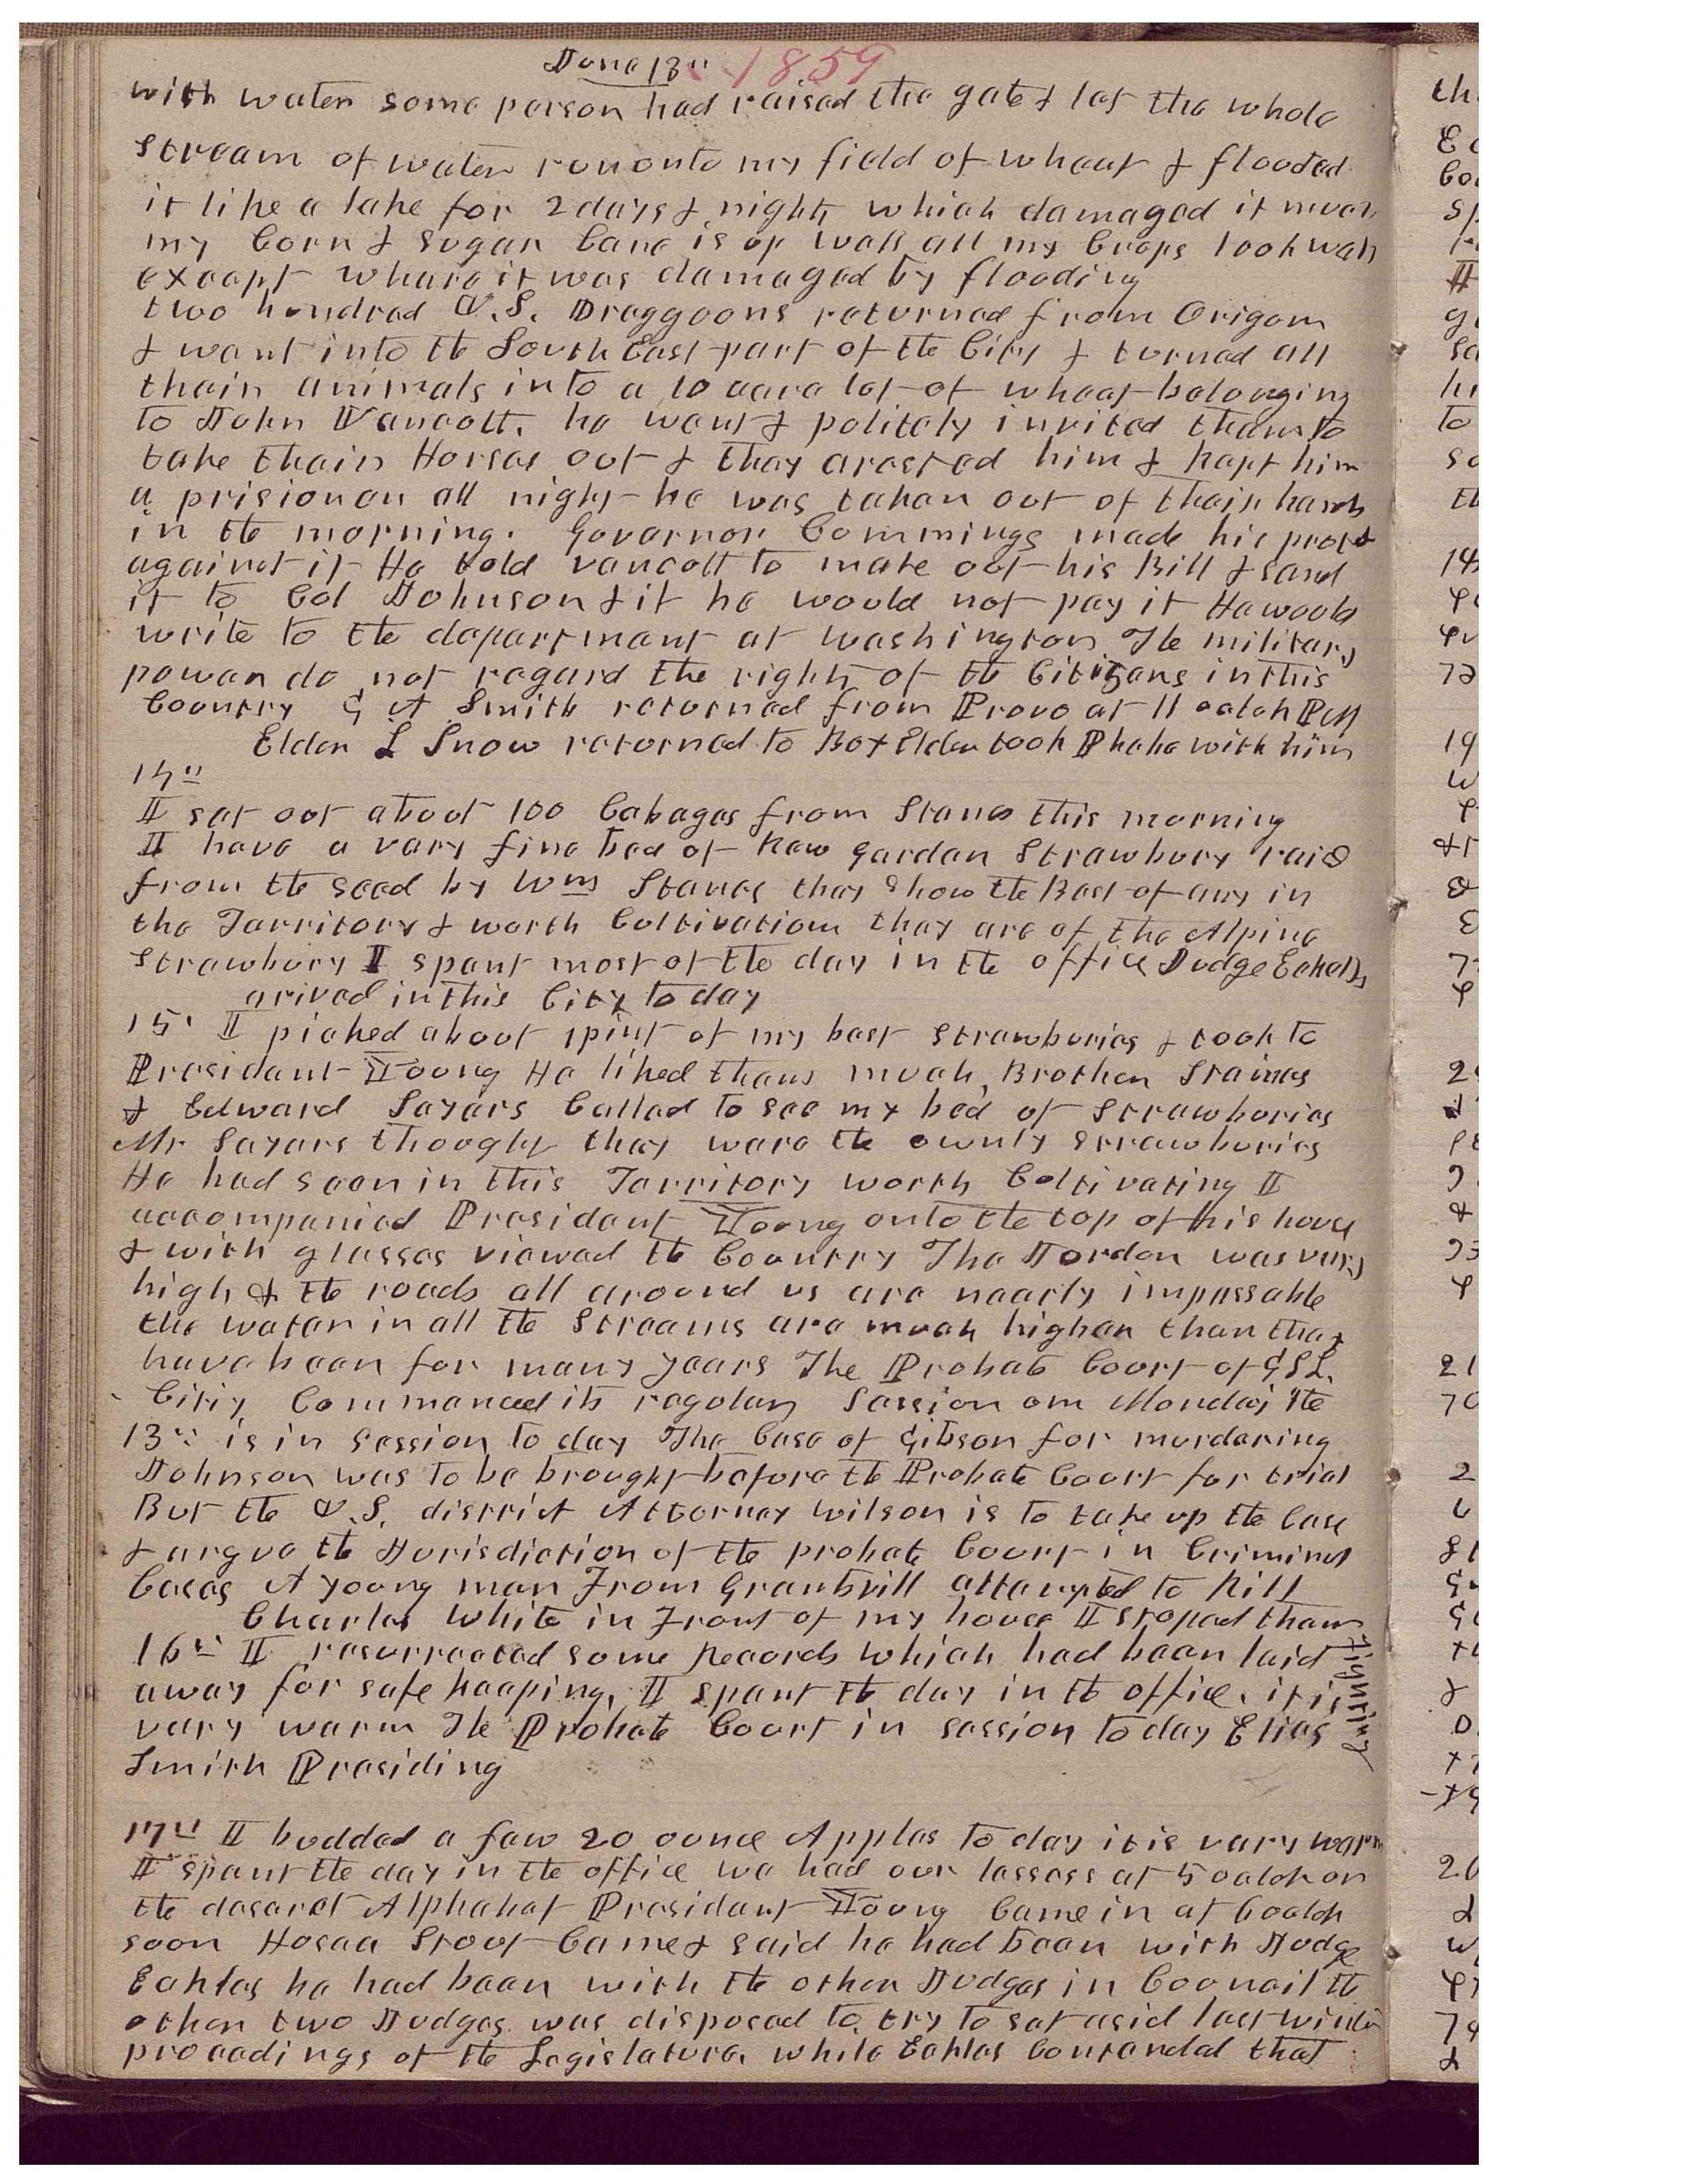 June 13" 1859
with water some person had raised the gate & let the whole
stream of water run onto my field of wheat & flooded
it like a lake for 2 days & nights which damaged it much
my Corn & Sugar Cane is up well all my Crops look well
except whare it was damaged by flooding
two hundred U.S. Draggoons returned from Origon
& went into the South East part of the City & turned all
their animals into a 10 acre lot of wheat belonging
to John Vancott. he went & politely invited them to
take their Horses out & they arested him & kept him
a prisioner all night he was taken out of their hands
in the morning. Governor Cummings made his protest
against it He told vancott to make out his Bill & send
it to Col Johnson & if he would not pay it He would
write to the department at washington The military
power do not regard the rights of the Citizens in this
Country G A Smith returned from Provo at 11 oclok PM
Elder L Snow returned to Box Elder took Phebe with him
14"
I set out about 100 Cabages from Stanes this morning
I have a very fine bed of New garden Strawbury raised
from the seed by Wm Stanes they show the Best of any in
the Territory & worth Cultivation they are of the Alpine
Strawbury I spent most of the day in the office Judge Eckels
arived in this City to day
15" I picked about 1 pint of my best strawburies & took to
President Young He liked them much, Brother Staines
& Edward Sayers Called to see my bed of Strawburies
Mr Sayers thought they ware the ownly strawburies
He had seen in this Territory worth Cultivating I
accompanied President Young onto the top of his house
& with glasses viewed the Country The Jordon was very
high & the roads all around us are nearly impassable
the water in all the Streams are much higher than they
have been for many years The Probate Court of GSL.
City Commenced its regular Session on Monday the
13" is in session to day The Case of Gibson for murdering
Johnson was to be brought before the Probate Court for trial
But the U.S. district Attorney Wilson is to take up the Case
& argue the Jurisdiction of the probate Court in Criminal
Cases A young man From Grantsvill attempted to Kill
Charles White in Front of my house I stoped them
Fighting
16" I resurrected some Records which had been laid
away for safe keeping, I spent the day in the office. it is
very warm The Probate Court in session to day Elias
Smith Presiding
17" I budded a few 20 ounce Apples to day it is very warm
I spent the day in the office we had our lessess at 5 oclok on
the deseret Alphabet President Young Came in at 6 oclok
soon Hosea Stout Came & said he had been with Judge
Eckles he had been with the other Judges in Councill the
other two Judges was disposed to try to set asid last winter
proceedings of the Legislature, while Eckles Contended that